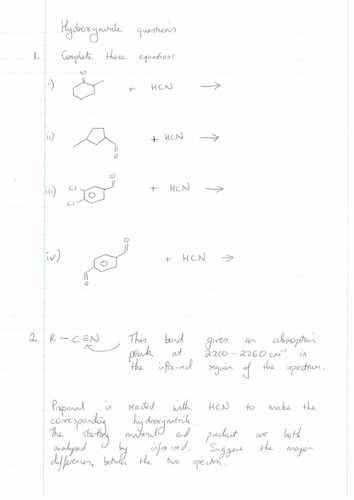 Hydroxynitrile questions
1. Complete these equations
i) O + HCN →
ii) O + HCN →
iii) Cl Cl O + HCN →
iv) O O + HCN →
2. R – C≡N This bond gives an absorption
peak at 2200 – 2260 cm⁻¹ in
the infra-red region of the spectrum.
Propanal is reacted with HCN to make the
corresponding hydroxynitrile.
The starting material and product are both
analysed by infra-red. Suggest the major
differences between the two spectra.